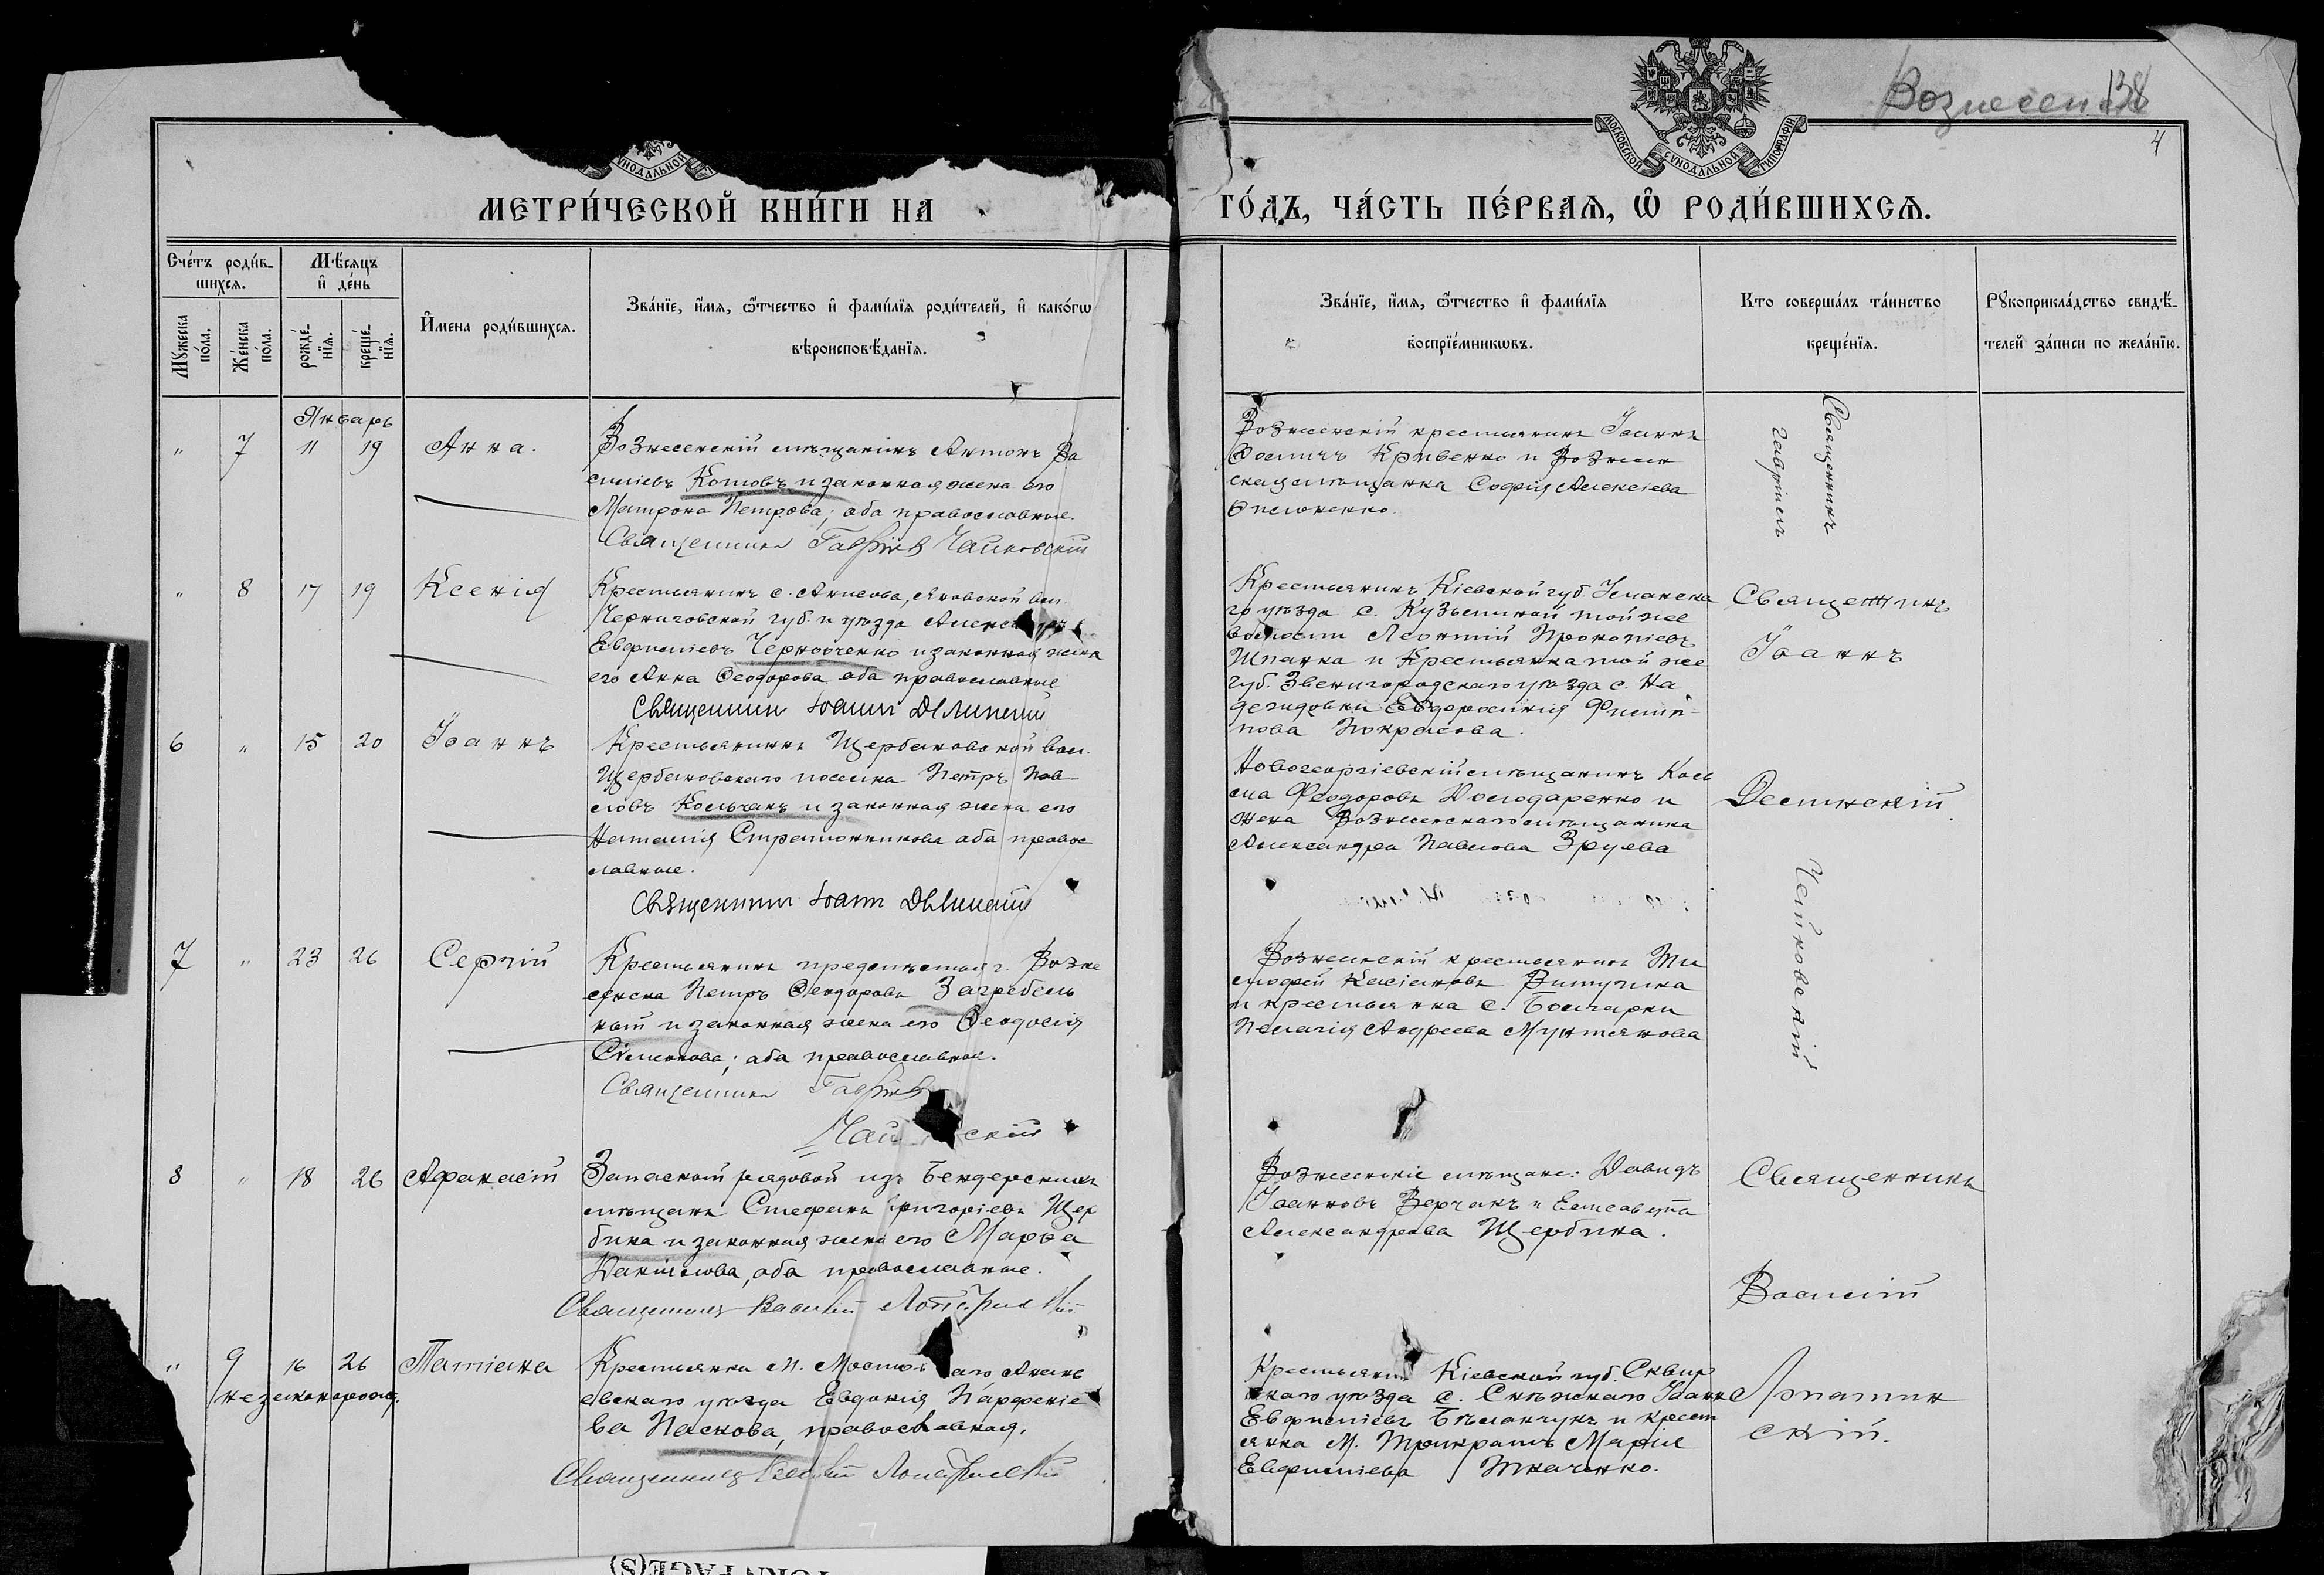 Вознесен 138
4
МОСКОВСКОЙ СѴНОДАЛЬНОЙ ТИПОГРАФІИ
УНОДАЛЬНОЙ
МЕТРИ́ЧЕСКОЙ КНИ́ГИ НА
ГО́ДЪ, ЧА́СТЬ ПЕ́РВАѦ, Ѡ РОДИ́ВШИХСѦ.
Сче́тъ роди́в-
шихсѧ.
Мѣ́сѧцъ
и҆ де́нь
Мꙋ́жеска
по́ла.
Же́нска
по́ла.
рожде́-
нїѧ.
креще́-
нїѧ.
И҆мена роди́вшихсѧ.
Зва́нїе, и҆́мѧ, ѻ҆́тчество и҆ фами́лїѧ роди́телей, и҆ како́гѡ
вѣроисповѣ́данїѧ.
Зва́нїе, и҆́мѧ, ѻ҆́тчество и҆ фами́лїѧ
воспрїе́мникѡвъ.
Кто соверша́лъ та́инство
креще́нїѧ.
Рꙋкоприкла́дство свидѣ́-
телей за́писи по жела́нїю.
Январь
" 7 11 19 Анна.
Вознесенскій мѣщанинъ Антонъ Ва
силіевъ Котовъ и законная жена его
Матрона Петрова; оба православные.
Священникъ Гавріилъ Чайковскій
Вознесенскій крестьянинъ Іоаннъ
Кривенко и Вознесен
ская мѣщанка Софія Алексіева
Священникъ
Гавріилъ
" 8 17 19 Ксенія
Крестьянинъ с. Анисова, Яновской вол.
Черниговской губ. и уѣзда
Евфиміевъ и законная жена
его Анна Ѳеодорова оба православные
Священникъ Іоаннъ
Крестьянинъ Кіевской губ. Уманска
го уѣзда с. Кузьминой той же
волости Леонтій Прокопіевъ
Шпанка и Крестьянка той же
губ. Звенигородскаго уѣзда с. На
Филип-
пова
Священникъ
Іоаннъ
6 " 15 20 Іоаннъ
Крестьянинъ Щербановской вол.
Щербановскаго поселка Петръ Пав-
ловъ Кольчакъ и законная жена его
Наталія Стратонникова оба правос
лавные.
Священникъ Іоаннъ
Новогеоргіевскій мѣщанинъ Кось
ма Ѳеодоровъ и
жена Вознесенскаго мѣщанина
Александра Павлова
Чайковскій
7 " 23 26 Сергій
Крестьянинъ предмѣстья г. Возне
сенска Петръ Ѳеодоровъ Загребель
ный и законная жена его Ѳеодосія
Симонова; оба православные.
Священникъ Гавріилъ
Вознесенскій крестьянинъ Ти
мофей
и крестьянка с. Болгарки
Пелагія Андреева Мунтянова
8 " 18 26 Афанасій
Запасный рядовой изъ Бендерскихъ
мѣщанъ Стефанъ Григоріевъ Щер
бина и законная жена его Марѳа
Даніилова, оба православные.
Священникъ Василій Лопатинскій
Вознесенскіе мѣщане: Давидъ
Іоанновъ Верчакъ и Елисавета
Александрова Щербина.
Священникъ
Василій
" 9 16 26 Татіана
незаконорожд.
Крестьянка м. Ананъ
евскаго уѣзда Евдокія Парфеніе
ва Паскова, православная.
Священникъ Василій Лопатинскій
Крестьянинъ Кіевской губ. Сквир
скаго уѣзда с. Іоаннъ
Евфиміевъ и крест
янка м. Трикратъ Марія
Евфиміева Ткаченко.
Лопатин
скій.